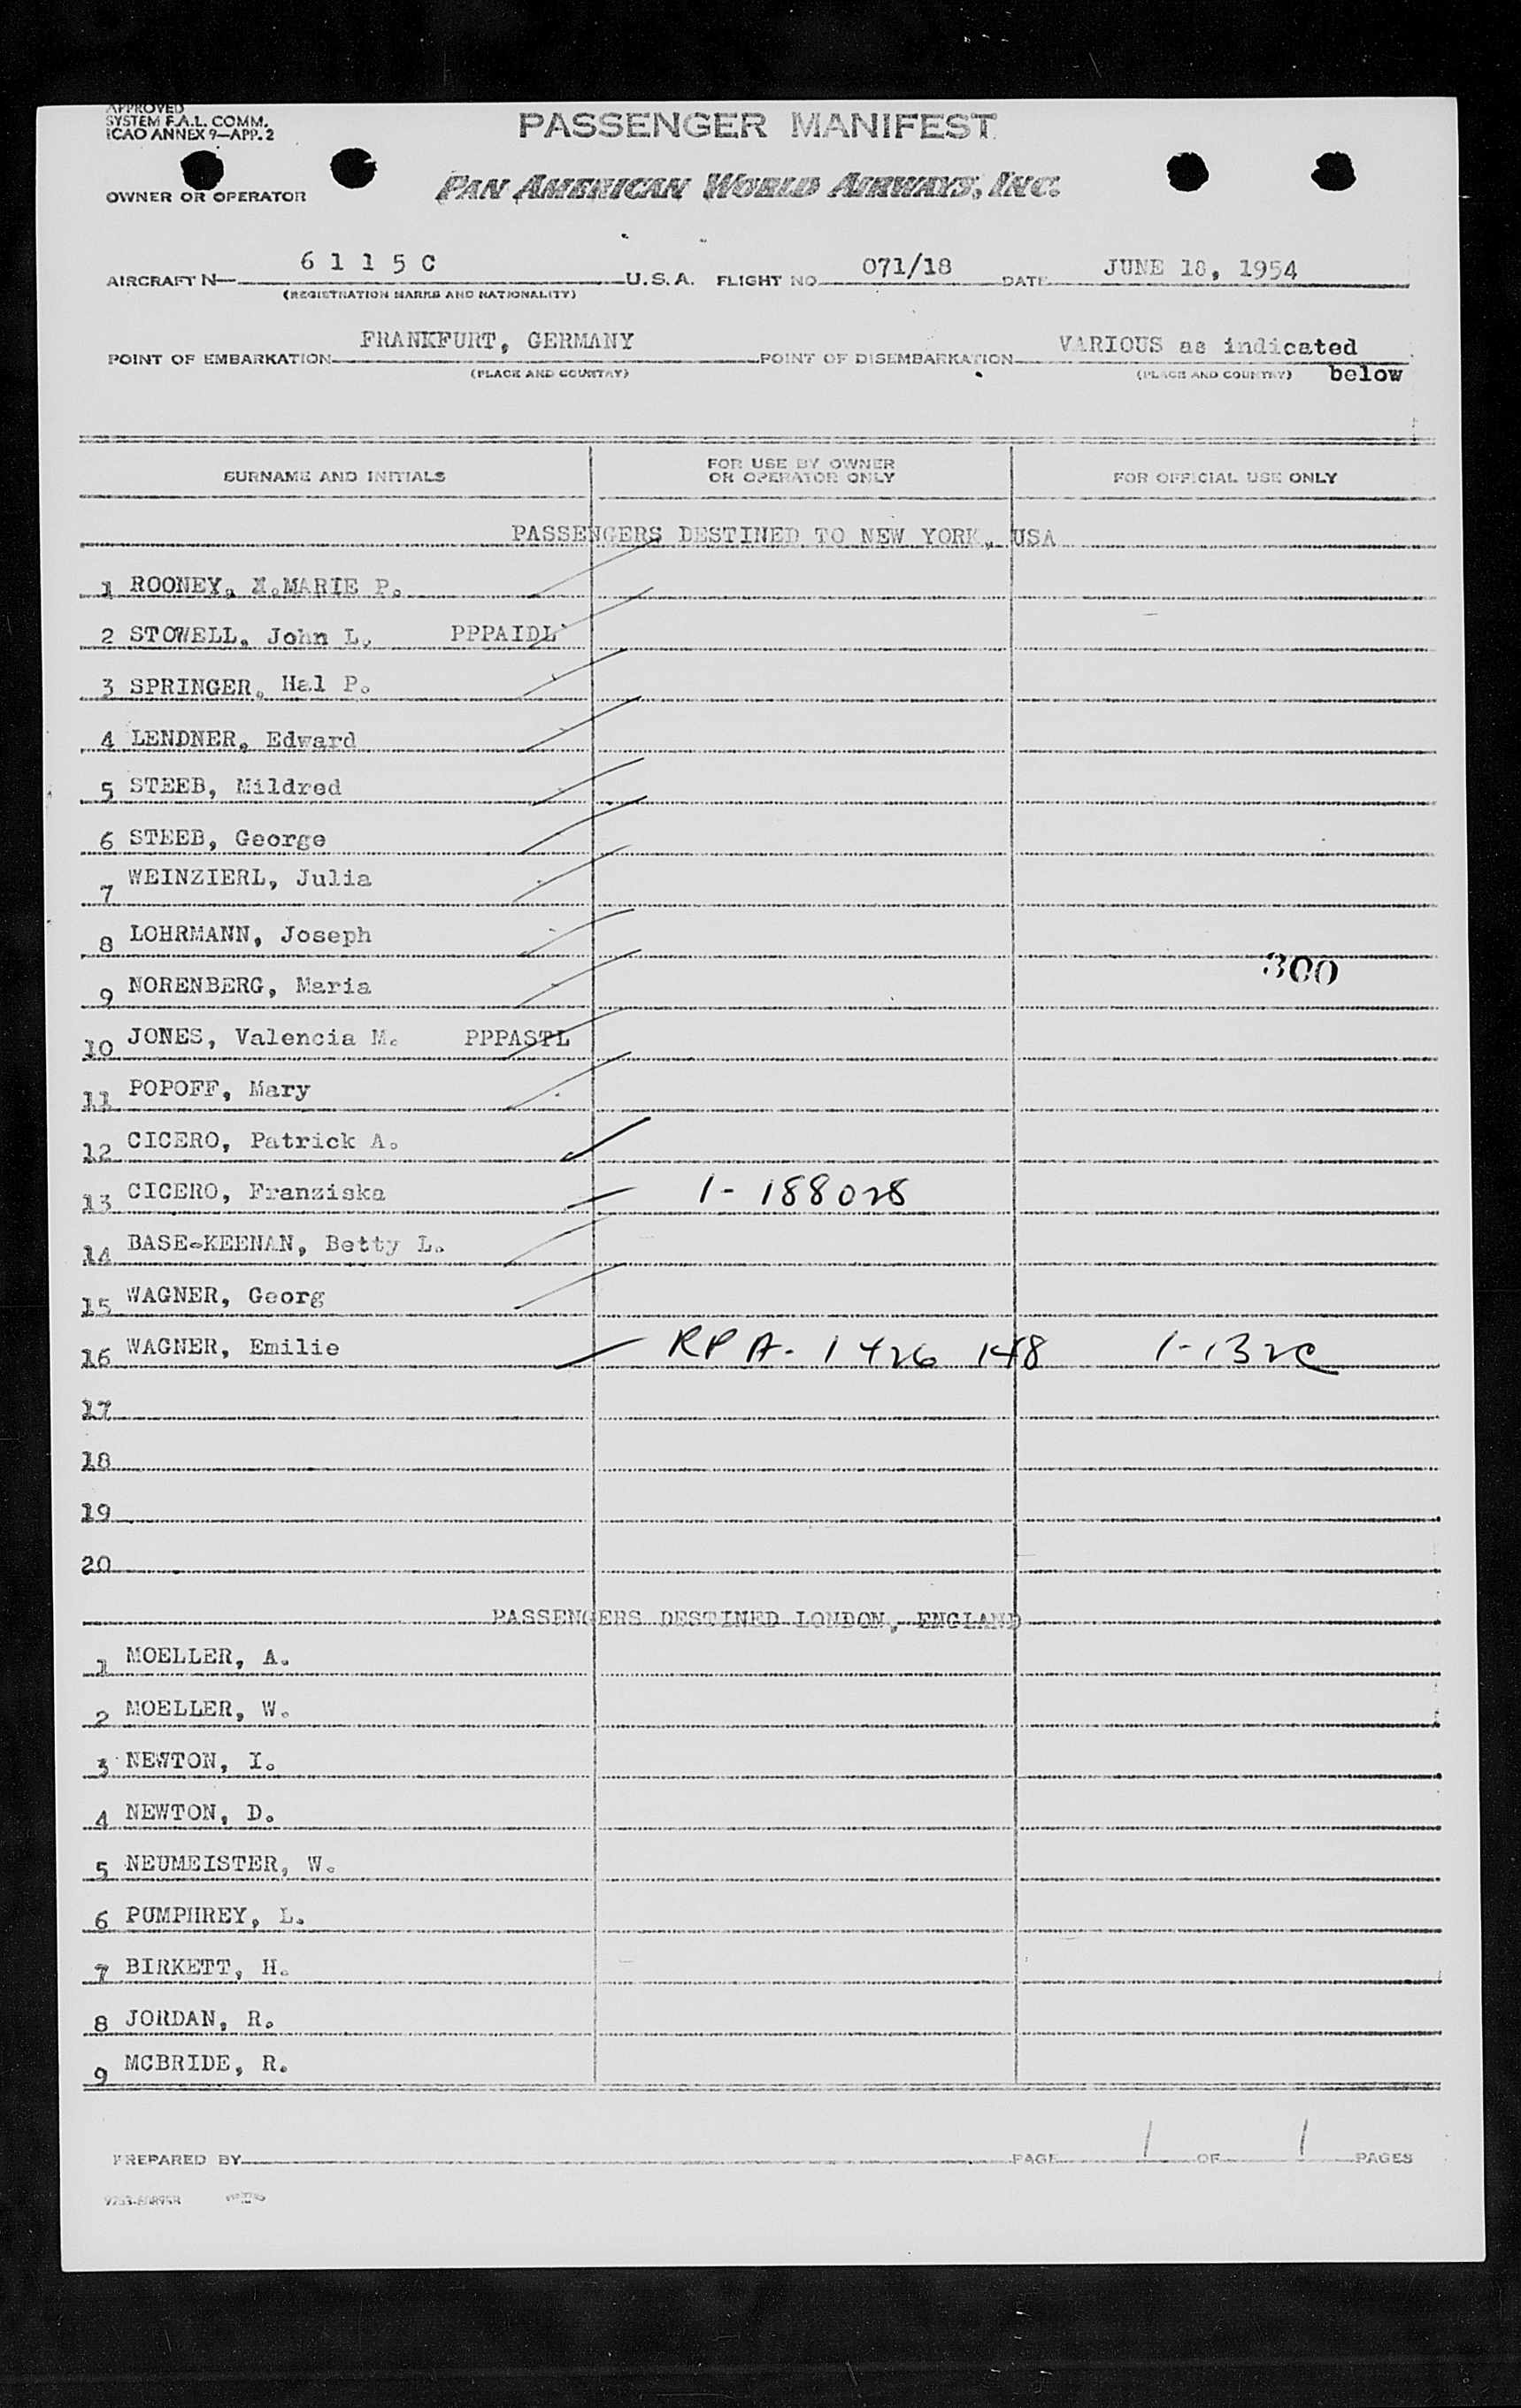 APPROVED
SYSTEM F.A.L. COMM.
ICAO ANNEX 9—APP. 2
PASSENGER MANIFEST
OWNER OR OPERATOR PAN AMERICAN WORLD AIRWAYS, INC.
AIRCRAFT N— 6115C U.S.A. FLIGHT NO 071/18 DATE JUNE 18, 1954
(REGISTRATION MARKS AND NATIONALITY)
POINT OF EMBARKATION FRANKFURT, GERMANY POINT OF DISEMBARKATION VARIOUS as indicated
(PLACE AND COUNTRY) (PLACE AND COUNTRY) below
SURNAME AND INITIALS FOR USE BY OWNER OR OPERATOR ONLY FOR OFFICIAL USE ONLY
PASSENGERS DESTINED TO NEW YORK, USA
1 ROONEY, MARIE P.
2 STOWELL, John L. PPPAIDL
3 SPRINGER, Hal P.
4 LENDNER, Edward
5 STEEB, Mildred
6 STEEB, George
7 WEINZIERL, Julia
8 LOHRMANN, Joseph
300
9 NORENBERG, Maria
10 JONES, Valencia M. PPPASTL
11 POPOFF, Mary
12 CICERO, Patrick A.
13 CICERO, Franziska 1-188028
14 BASE-KEENAN, Betty L.
15 WAGNER, Georg
16 WAGNER, Emilie RPA-1426 148 1-132c
17
18
19
20
PASSENGERS DESTINED LONDON, ENGLAND
1 MOELLER, A.
2 MOELLER, W.
3 NEWTON, I.
4 NEWTON, D.
5 NEUMEISTER, W.
6 PUMPHREY, L.
7 BIRKETT, H.
8 JORDAN, R.
9 MCBRIDE, R.
PREPARED BY PAGE 1 OF 1 PAGES